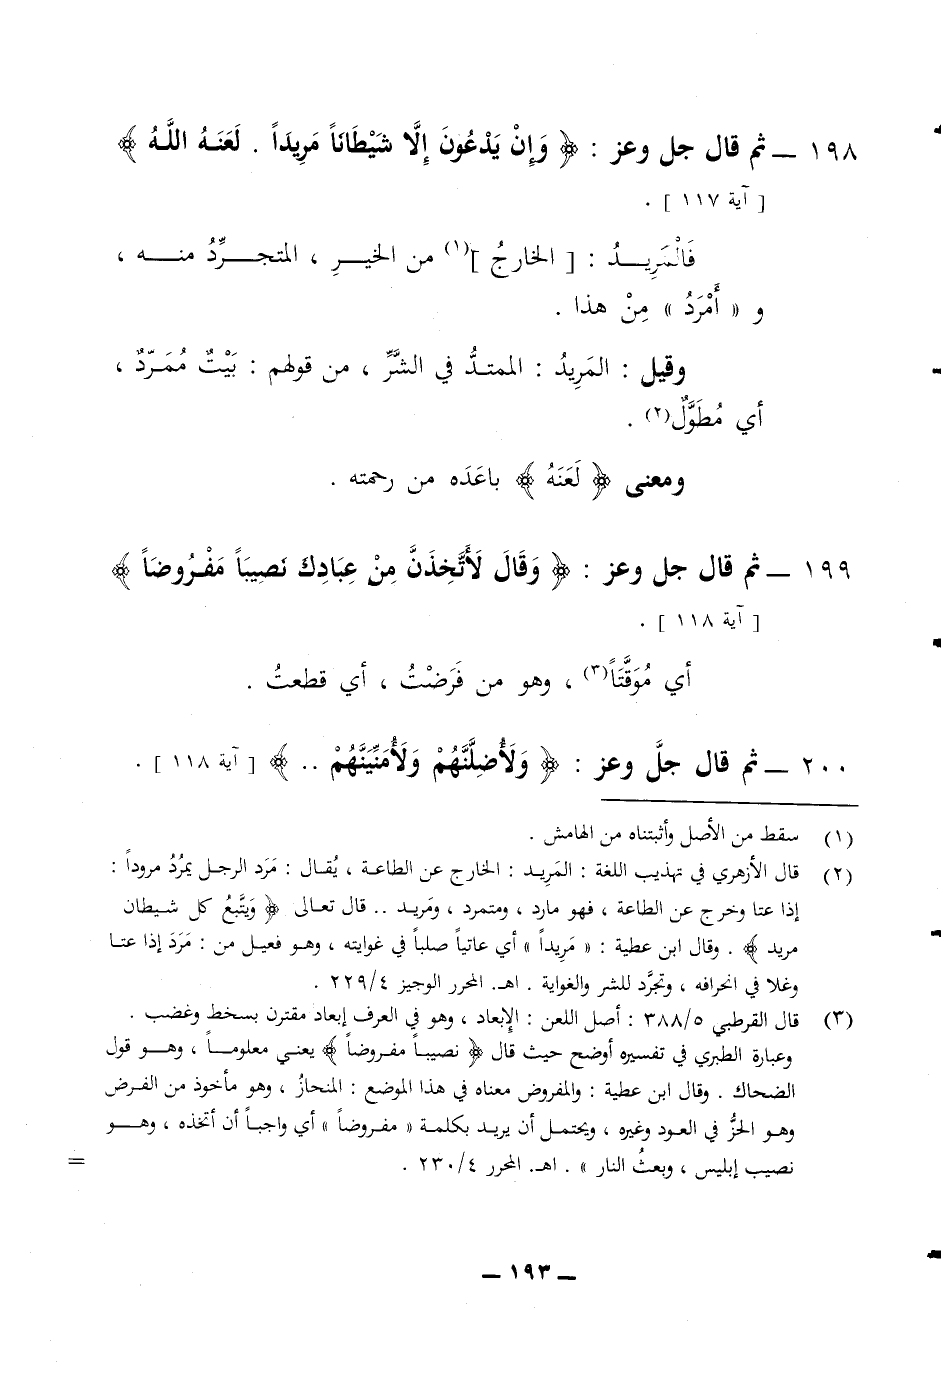 ١٩٨ ــ ثم قال جل وعز : ﴿ وَإِنْ يَدْعُونَ إِلَّا شَيْطَانَاً مَرِيدَاً . لَعَنَهُ اللَّهُ ﴾
[ آية ١١٧ ] .
فَالْمَرِيدُ : [ الخارجُ ](١) من الخيرِ ، المتجرِّدُ منه ،
و « أَمْرَدُ » مِنْ هذا .
وقيل : المَرِيدُ : الممتدُّ في الشَّرِّ ، من قولهم : بَيْتٌ مُمَرَّدٌ ،
أي مُطَوَّلٌ(٢) .
ومعنى ﴿ لَعَنَهُ ﴾ باعَدَه من رحمته .
١٩٩ ــ ثم قال جل وعز : ﴿ وَقَالَ لَأَتَّخِذَنَّ مِنْ عِبَادِكَ نَصِيبَاً مَفْرُوضَاً ﴾
[ آية ١١٨ ] .
أي مُوَقَّتَاً(٣) ، وهو من فَرَضْتُ ، أي قطعتُ .
٢٠٠ ــ ثم قال جلَّ وعز : ﴿ وَلَأُضِلَّنَّهُمْ وَلَأُمَنِّيَنَّهُمْ .. ﴾ [ آية ١١٨ ] .
(١) سقط من الأصل وأثبتناه من الهامش .
(٢) قال الأزهري في تهذيب اللغة : المَرِيد : الخارج عن الطاعة ، يُقال : مَرَد الرجل يمرُدُ مروداً :
إذا عتا وخرج عن الطاعة ، فهو مارد ، ومتمرد ، ومَريد .. قال تعالى ﴿ وَيَتَّبِعُ كل شيطان
مريد ﴾ . وقال ابن عطية : « مَرِيداً » أي عاتياً صلباً في غوايته ، وهو فعيل من : مَرَدَ إذا عتا
وغلا في انحرافه ، وتجرَّد للشر والغواية . اهـ. المحرر الوجيز ٢٢٩/٤ .
(٣) قال القرطبي ٣٨٨/٥ : أصل اللعن : الإبعاد ، وهو في العرف إبعاد مقترن بسخط وغضب .
وعبارة الطبري في تفسيره أوضح حيث قال ﴿ نصيباً مفروضاً ﴾ يعني معلوماً ، وهو قول
الضحاك . وقال ابن عطية : والمفروض معناه في هذا الموضع : المنحازُ ، وهو مأخوذ من الفرض
وهو الحزُّ في العود وغيره ، ويحتمل أن يريد بكلمة « مفروضاً » أي واجباً أن أتخذه ، وهو
نصيب إبليس ، وبعثُ النار » . اهـ. المحرر ٢٣٠/٤ .
=
ــ ١٩٣ ــ